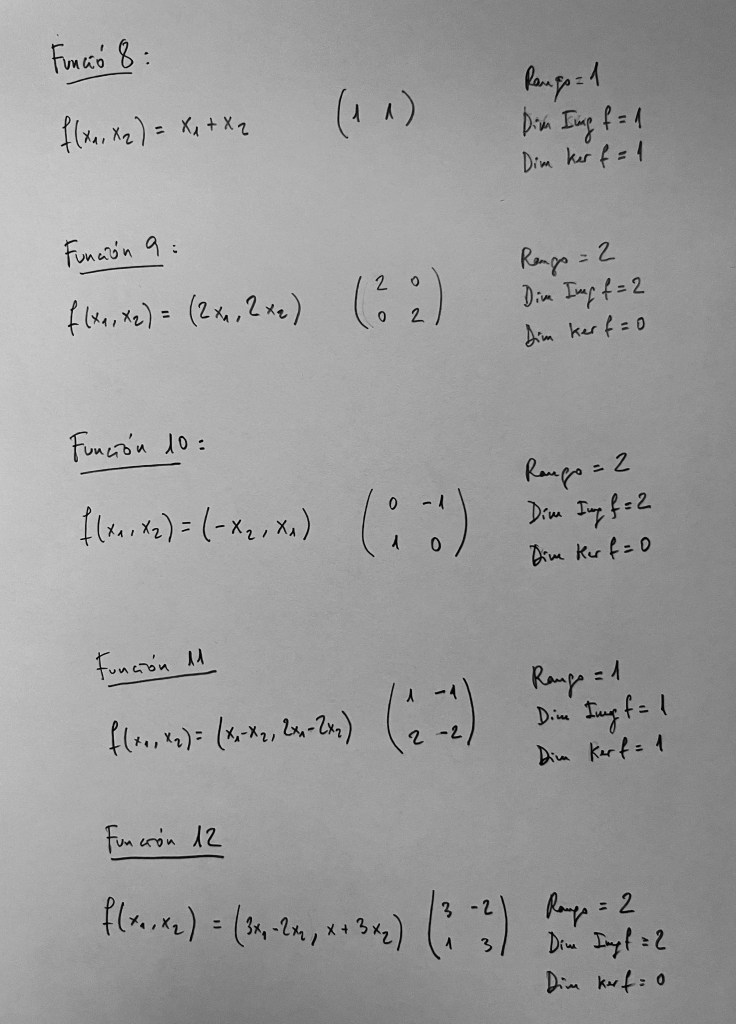 Funció 8:
f(x₁, x₂) = x₁ + x₂ (1 1)
Rango = 1
Dim Img f = 1
Dim Ker f = 1
Función 9:
f(x₁, x₂) = (2x₁, 2x₂) (2 0
0 2)
Rango = 2
Dim Img f = 2
Dim Ker f = 0
Función 10:
f(x₁, x₂) = (-x₂, x₁) (0 -1
1 0)
Rango = 2
Dim Img f = 2
Dim Ker f = 0
Función 11
f(x₁, x₂) = (x₁-x₂, 2x₁-2x₂) (1 -1
2 -2)
Rango = 1
Dim Img f = 1
Dim Ker f = 1
Función 12
f(x₁, x₂) = (3x₁-2x₂, x + 3x₂) (3 -2
1 3)
Rango = 2
Dim Img f = 2
Dim Ker f = 0